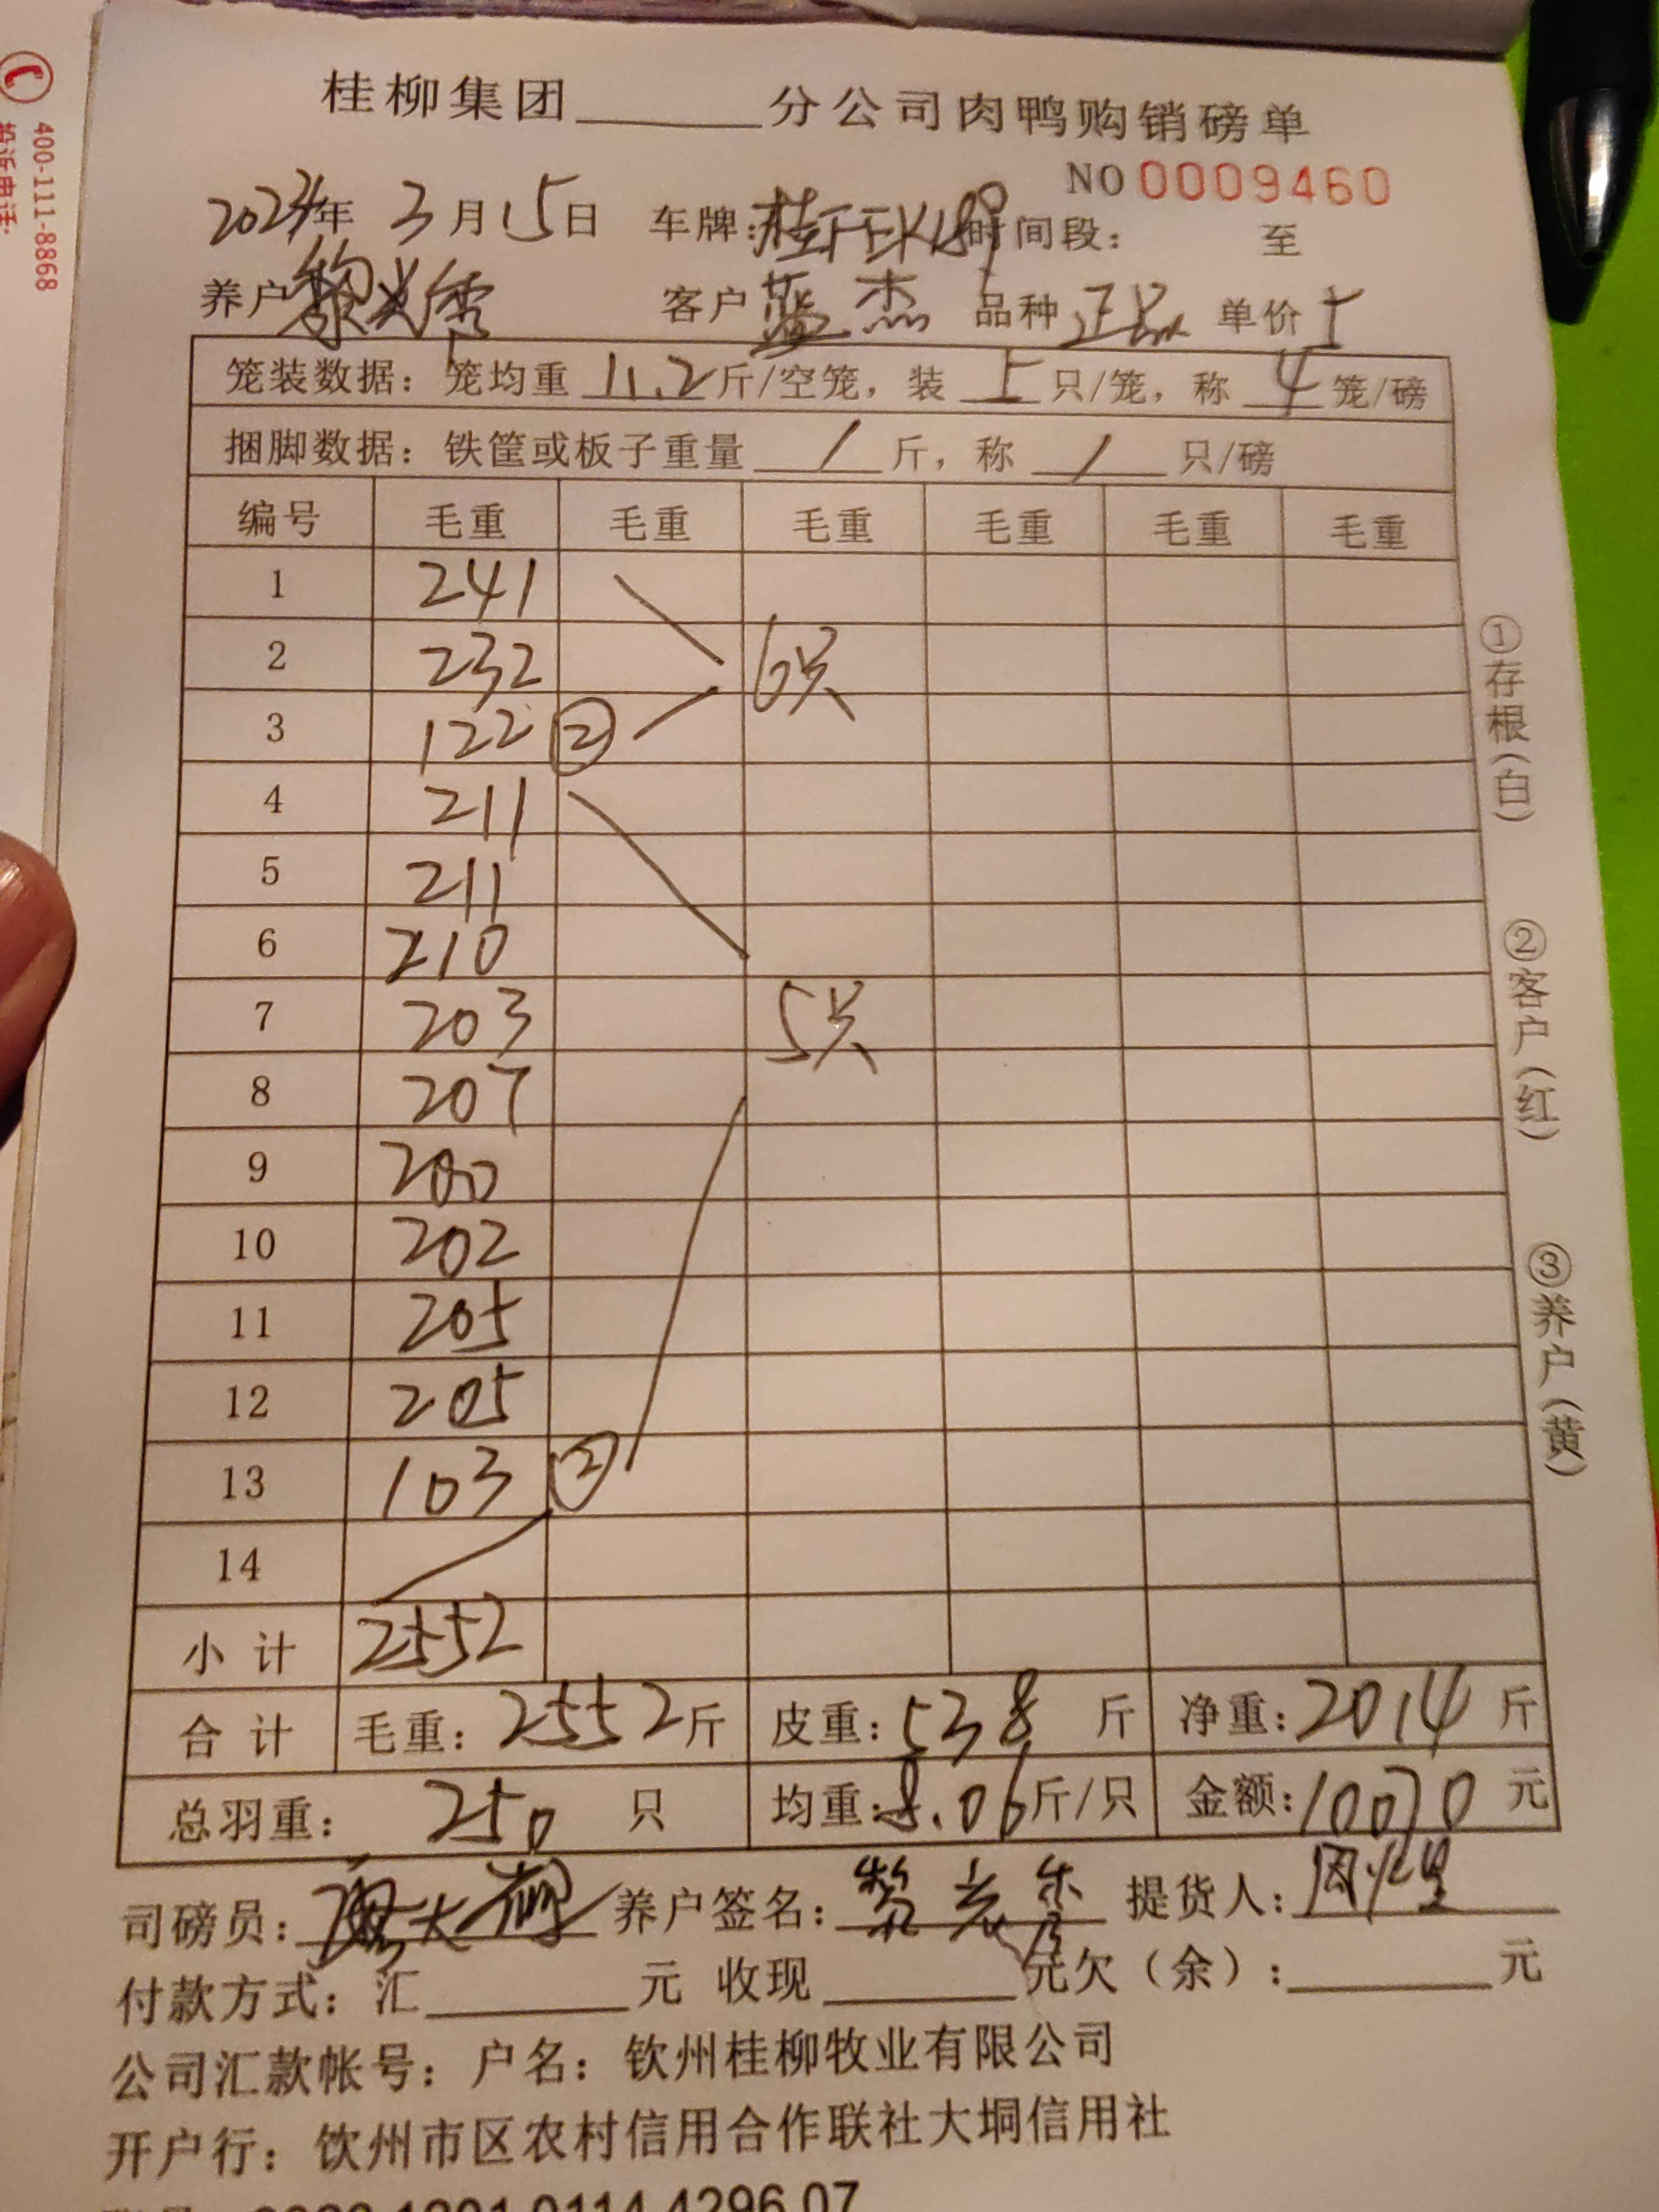 400-111-8868
投诉电话:
桂柳集团______分公司肉鸭购销磅单
NO 0009460
2024年 3月15日 车牌: 时间段: 至
养户 客户 蓝杰 品种 正品 单价 5
笼装数据: 笼均重 11.2 斤/空笼, 装 5 只/笼, 称 4 笼/磅
捆脚数据: 铁筐或板子重量 / 斤, 称 / 只/磅
编号 毛重 毛重 毛重 毛重 毛重 毛重
1 241
2 232 6只
3 122 ②
4 211
5 211
6 210
7 203 5只
8 207
9 200
10 202
11 205
12 205
13 103 ②
14
小计 2552
合计 毛重: 2552斤 皮重: 538 斤 净重: 2014 斤
总羽重: 250 只 均重: 8.06斤/只 金额: 10070 元
司磅员: 养户签名: 提货人:
付款方式: 汇______元 收现______元欠(余):______元
公司汇款帐号: 户名: 钦州桂柳牧业有限公司
开户行: 钦州市区农村信用合作联社大垌信用社
①存根(白)
②客户(红)
③养户(黄)